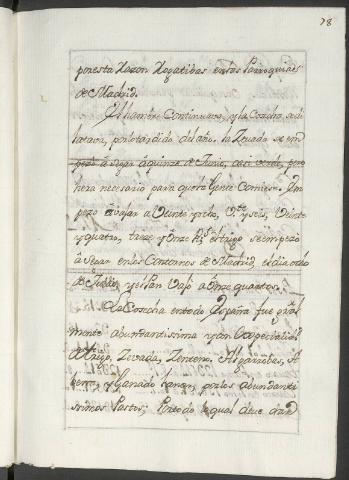 78
por esta Razon Rogatibas en las Parroquias
de Madrid.
El hambre Continuava, y la Cosecha se di
latava, por lo tardido del año. la Zevada se em
pezó à segar à quinze de Junio, casi verde, pero
hera necesario para que la Gente Comiese. Em
pezo à vajar à Veinte y ocho, Vte y seis, Veinte
y quatro, treze y Onze Rs. el trigo se empezó
à segar en los Contornos de Madrid, el dia ocho
de Julio, y el Pan vajo à Onze quartos.
La Cosecha en todo España fue gral
mente abundantissima y con Especialidad
de trigo, Zevada, Zenteno, Algarrobas,
y Ganado lanar, por los abundanti
simos Pastos; Por todo lo qual deve dar